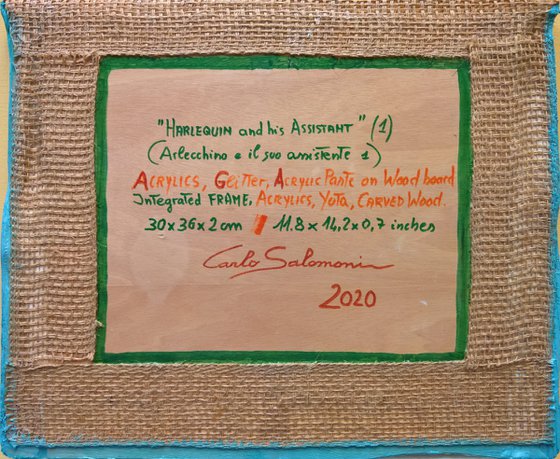 "HARLEQUIN and his ASSISTANT" (1)
(Arlecchino e il suo assistente 1)
ACRYLICS, GLITTER, ACRYLIC PASTE on Wood board
Integrated FRAME, ACRYLICS, YUTA, CARVED WOOD.
30x36x2 cm / 11.8 x 14,2 x 0,7 inches
Carlo Salomoni
2020